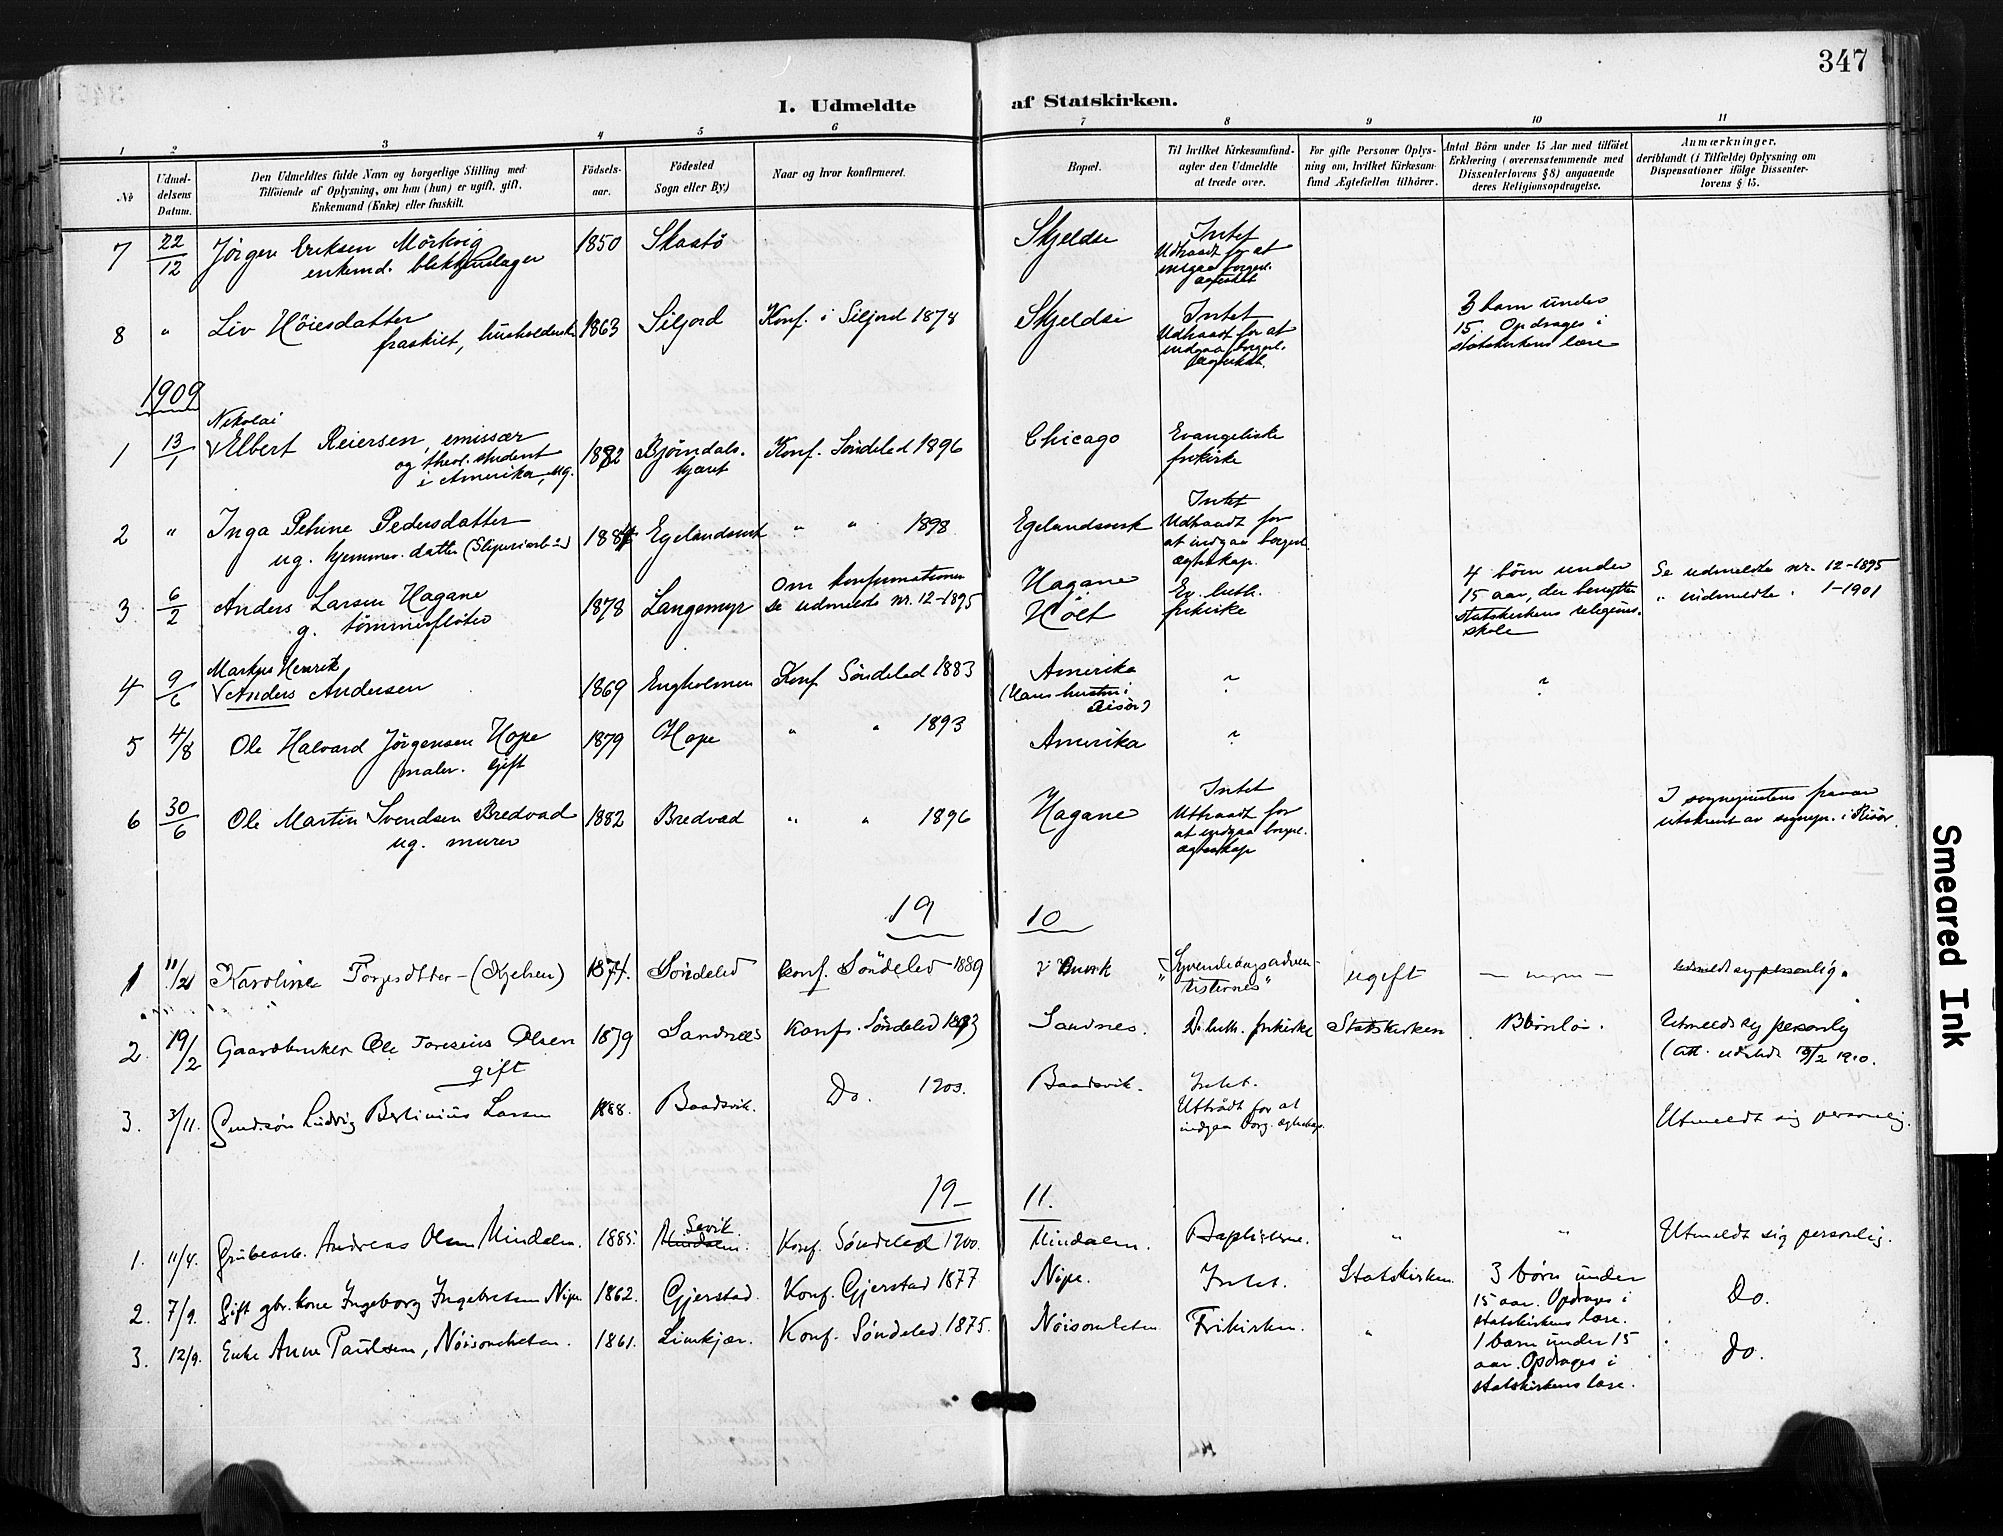 347
1. Udmeldte af Statskirken.
1 2 3 4 5 6 7 8 9 10 11
No
Udmeldelsens Datum.
Den Udmeldtes fulde Navn og borgerlige Stilling med
Tilföiende af Oplysning, om han (hun) er ugift, gift,
Enkemand (Enke) eller fraskilt.
Födselsaar.
Födested
Sogn eller By)
Naar og hvor konfirmeret.
Bopæl.
Til hvilket Kirkesamfund-
agter den Udmeldte
at træde over.
For gifte Personer Oplys-
ning om, hvilket Kirkesam-
fund Ægtefællen tilhörer.
Antal Börn under 15 Aar med tilföiet
Erklæring (overensstemmende med
Dissenterlovens § 8) angaaende
deres Religionsopdragelse.
Anmærkninger,
deriblandt (i Tilfælde) Oplysning om
Dispensationer ifölge Dissenter-
lovens § 15.
7 22/12 Jörgen Eriksen Mörkvig 1850 Skaatö Skjeldsi Intet
enkemd. blikkenslager Udtraadt for at
indgaa borgerl.
ægteskab
8 " Liv Höiesdatter 1863 Siljord Konf. i Siljord 1878 Skjeldsi Intet 3 barn under
fraskilt, husholderske Udtraadt for at 15. Opdrages i
indgaa borgerl. statskirkens lære
ægteskab.
1909
Nikolai
1 13/1 V Elbert Reiersen, emissær 1882 Bjørndals- Konf. Söndeled 1896 Chicago Evangeliske
og theol. student kjæret frikirke
i Amerika, ug.
2 " Inga Petrine Pedersdatter 1884 Egelandsverk " " 1898 Egelandsverk Intet
ug. hjemmev. datter Udtraadt for
at indgaa borgerl.
ægteskap.
3 6/2 Anders Larsen Hagane 1878 Langemyr Om konfirmationen Hagane Ev. luth. 4 börn under Se udmeldte nr. 12-1895
g. tömmerfløter se udmeldte nr. 12-1895 Holt frikirke 15 aar, der benytter " indmeldte " 1-1901
statskirkens religions-
skole
Markus Henrik
4 9/6 V Anders Andersen 1869 Engholmen Konf Söndeled 1883 Amerika ? ?
(Hans hustru i
Risör)
5 4/8 Ole Halvard Jörgensen Hope 1879 Hope " " 1893 Amerika ?
maler. Gift
6 30/6 Ole Martin Svendsen Bredvad 1882 Bredvad " " 1896 Hagane Intet I sogneprestens fravær
ug. murer Uttraadt for utskrevet av sognepr. i Risör.
at indgaa borgerl.
ægteskap
19 10
1 11/2 Karoline Torjesdtter - (Kjelsen) 1874. Söndeled konf. Söndeled 1889 "Syvendedagsadven- ugift - ingen - udmeldt sig personlig.
tisternes"
2. 19/2 Gaardbruker Ole Toresius Olsen 1879 Sandnæs Konf. Söndeled 1893 Sandnes. D. luth. frikirke Statskirken Barnløs. Utmeldt sig personlig
gift (att. udstedt 19/2 1910.
3. 3/11. Gmd.søn Ludvig Bertinius Larsen 1888. Baadsvik. Do. 1903. Baadsvik. Intet.
Uttrådt for at Utmeldt sig personlig.
indgaa borg. ægteskap.
19- 11.
1. 11/4. Grubearb. Andreas Olsen Mindalen. 1885. Sevik. Mindalen. Konf. Søndeled 1900. Mindalen. Baptisterne. " " Utmeldt sig personlig.
2. 7/9. Gift gbr. kone Ingeborg Ingebretsen Nipe. 1862. Gjerstad. Konf. Gjerstad 1877 Nipe. Intet. Statskirken. 3 børn under Do.
15 aar. Opdrages i
statskirkens lære.
3. 12/9. Enke Anne Paulsen, Nöisomheten. 1861. Limkjær. Konf. Søndeled. 1875. Nöisomheten. Frikirken. " 1 barn under 15 Do.
aar. Opdrages i
statskirkens lære.
Smeared Ink